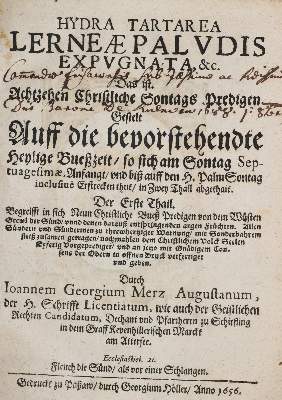 HYDRA TARTAREA
LERNEÆ PALVDIS
EXPVGNATA, &c.
Das ist.
Achtzehen Christliche Sontags Predigen
Gestelt
Auff die bevorstehendte
Heylige Bueßzeit / so sich am Sontag Sep-
tuagesimæ Anfangt / vnd biß auff den H. Palm Sontag
inclusivè Erstrecken thut / in Zwey Thail abgethailt.
Der Erste Thail.
Begreifft in sich Neun Christliche Bueß Predigen von dem Wüsten
Grewl der Sünd / vnnd denen darauß entspringenden argen Früchten. Allen
Sündern vnd Sünderinen zu threwhertziger Warnung / mit Sonderbahrem
fleiß zusamen getragen / nochmahlen dem Christlichem Volck Seelen
Eyferig Vorgeprediget / vnd an jetzo mit Gnädigem Con-
sens der Obern in offnen Druck verfertiget
vnd geben.
Durch
Ioannem Georgium Merz Augustanum,
der H. Schrifft Licentiatum, wie auch der Geistlichen
Rechten Candidatum, Dechant vnd Pfarherrn zu Schirfling
in dem Graff Kevenhillerischen Marckt
am Attersee.
Ecclesiastici. 21.
Fleuch die Sünd / als vor einer Schlangen.
Gedruckt zu Passaw / durch Georgium Höller / Anno 1656.